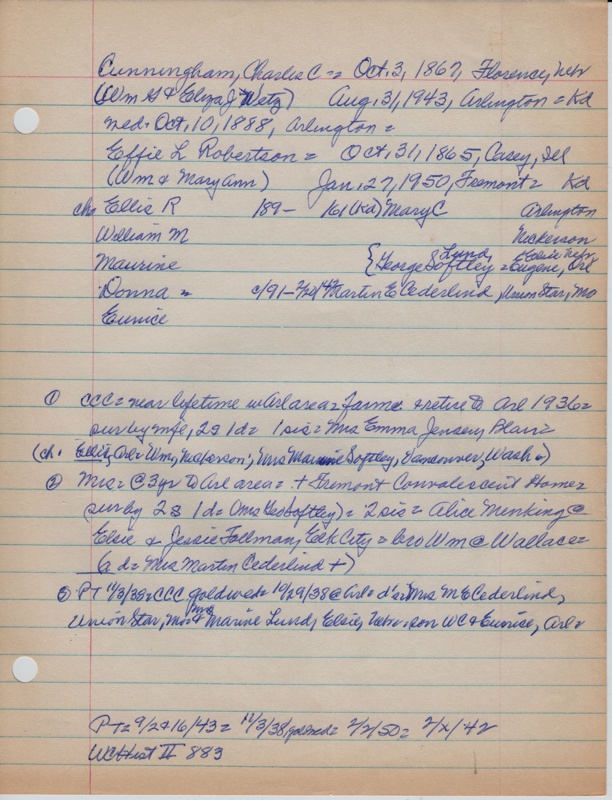 Cunningham, Charles C = Oct. 3, 1867, Florence, Nebr
(Wm G & Eliza J Wetz) Aug. 31, 1943, Arlington = Kd
med. Oct. 10, 1888, Arlington =
Effie L Robertson = Oct. 31, 1865, Casey, Ill
(Wm & Mary Ann) Jan. 27, 1950, Fremont = Kd
chn Ellis R 189- 1961 (Kd) Mary C Arlington
William M Nickerson
Maurine { Lund, Elsie Nebr
George Softley = Eugene, Ore
Donna = c/91 - 2/20/42 Martin E Cederlind, Union Star, Mo
Eunice
① CCC = near lifetime in Arl area = farmed & retired to Arl 1936 =
sur by wife, 2s 1d = 1 sis = Mrs Emma Jensen, Blair =
(ch. Ellis, Arl = Wm, Nickerson; Mrs Maurine Softley, Vancouver, Wash.)
② Mrs = @ 3yr to Arl area = + Fremont Convalescent Home =
(sur by 2s 1d = (Mrs Geo Softley) = 2 sis = Alice Menking @
Elsie & Jessie Follman, Elk City = bro Wm @ Wallace =
(a d = Mrs Martin Cederlind +)
③ PT 11/3/38 = CCC gold wed = 10/29/38 @ Arl = d's = Mrs M E Cederlind,
Union Star, Mo & Mrs Marine Lund, Elsie, Nebr = son WC & Eunice, Arl =
PT = 9/2 & 16/43 = 11/3/38 gold wed = 2/2/50 = 2/x/42
WC Hist II 883